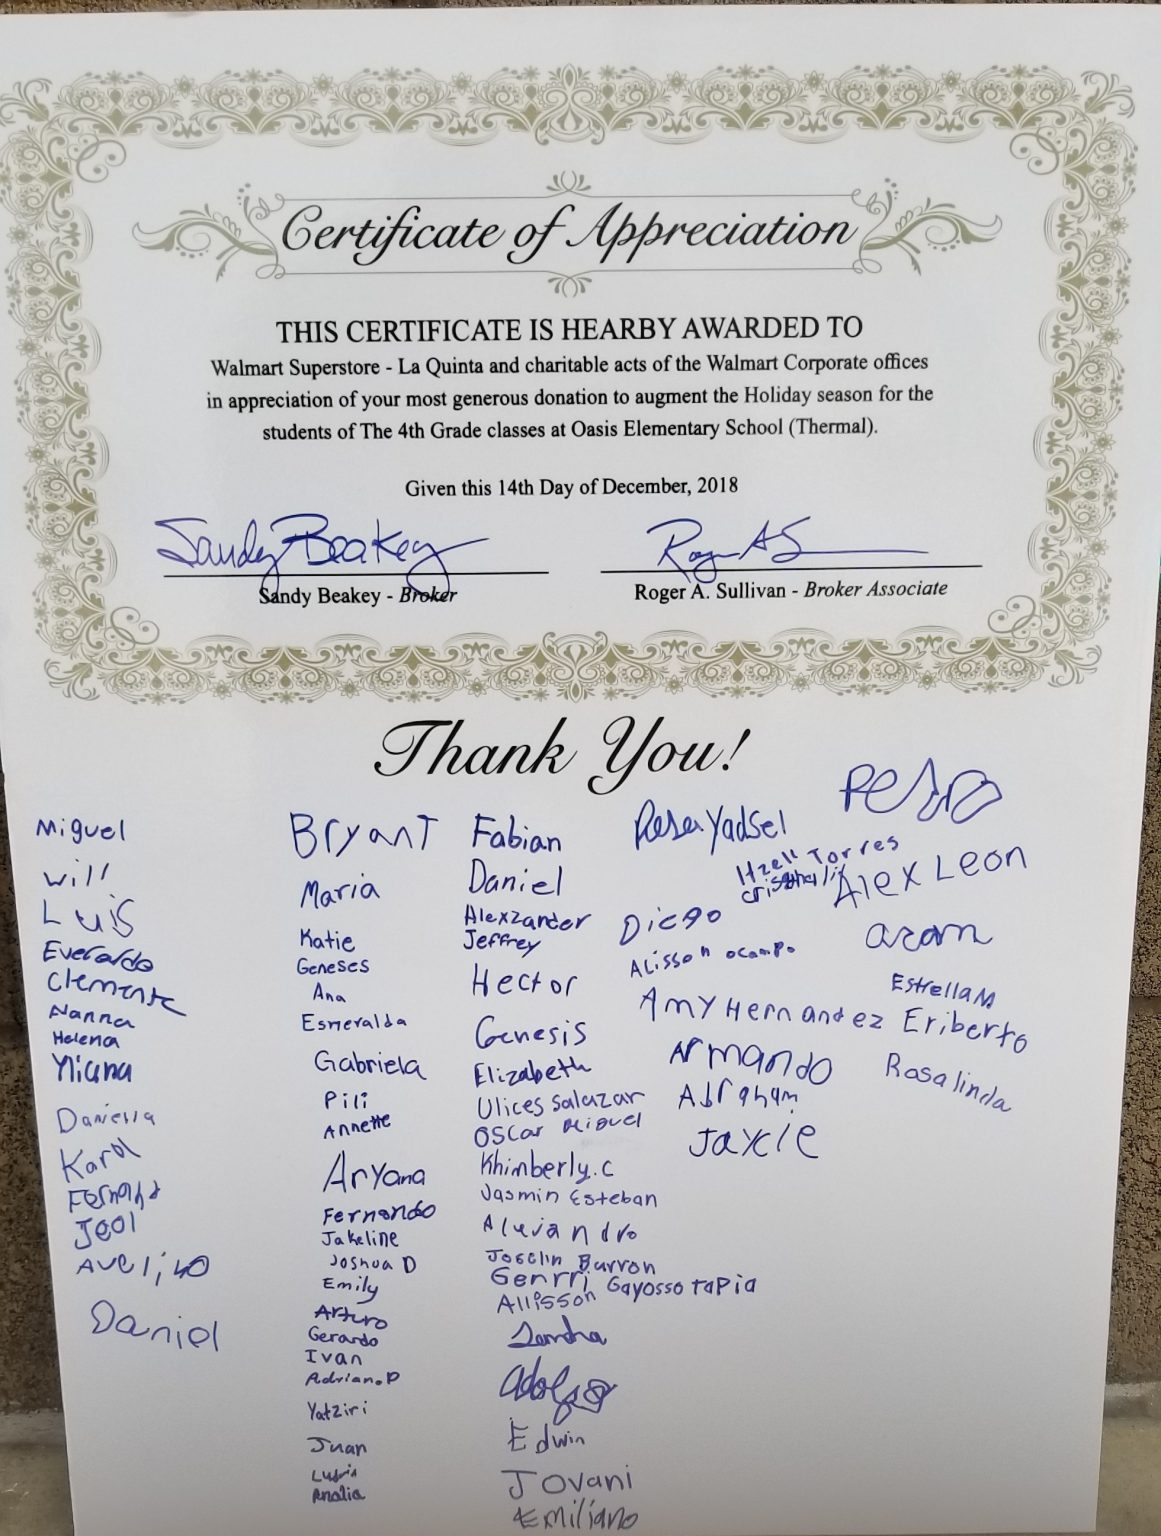 Certificate of Appreciation
THIS CERTIFICATE IS HEARBY AWARDED TO
Walmart Superstore - La Quinta and charitable acts of the Walmart Corporate offices
in appreciation of your most generous donation to augment the Holiday season for the
students of The 4th Grade classes at Oasis Elementary School (Thermal).
Given this 14th Day of December, 2018
Sandy Beakey
Sandy Beakey - Broker
Roger A. Sullivan - Broker Associate
Thank You!
Miguel
Will
Luis
Everardo
Clemente
Nanna
Helena
Daniella
Karol
Fernanda
Jeol
Daniel
Bryant
Maria
Katie
Geneses
Ana
Esmeralda
Gabriela
Pili
Annette
Aryana
Fernando
Jakeline
Joshua D
Emily
Arturo
Gerardo
Ivan
Adriano.P
Yatziri
Juan
Analia
Fabian
Daniel
Alexzander
Jeffrey
Hector
Genesis
Elizabeth
Ulices Salazar
Oscar Miguel
Khimberly.c
Jasmin Esteban
Alejandro
Joselin Barron
Genrri Gayosso Tapia
Allisson
Sandra
Adolfo
Edwin
Jovani
Emiliano
Yadsel
Diego
Alisson ocampo
Amy Hernandez
Armando
Abraham
Jaycie
Pedro
Torres
Alex Leon
aron
Estrella M
Eriberto
Rosalinda